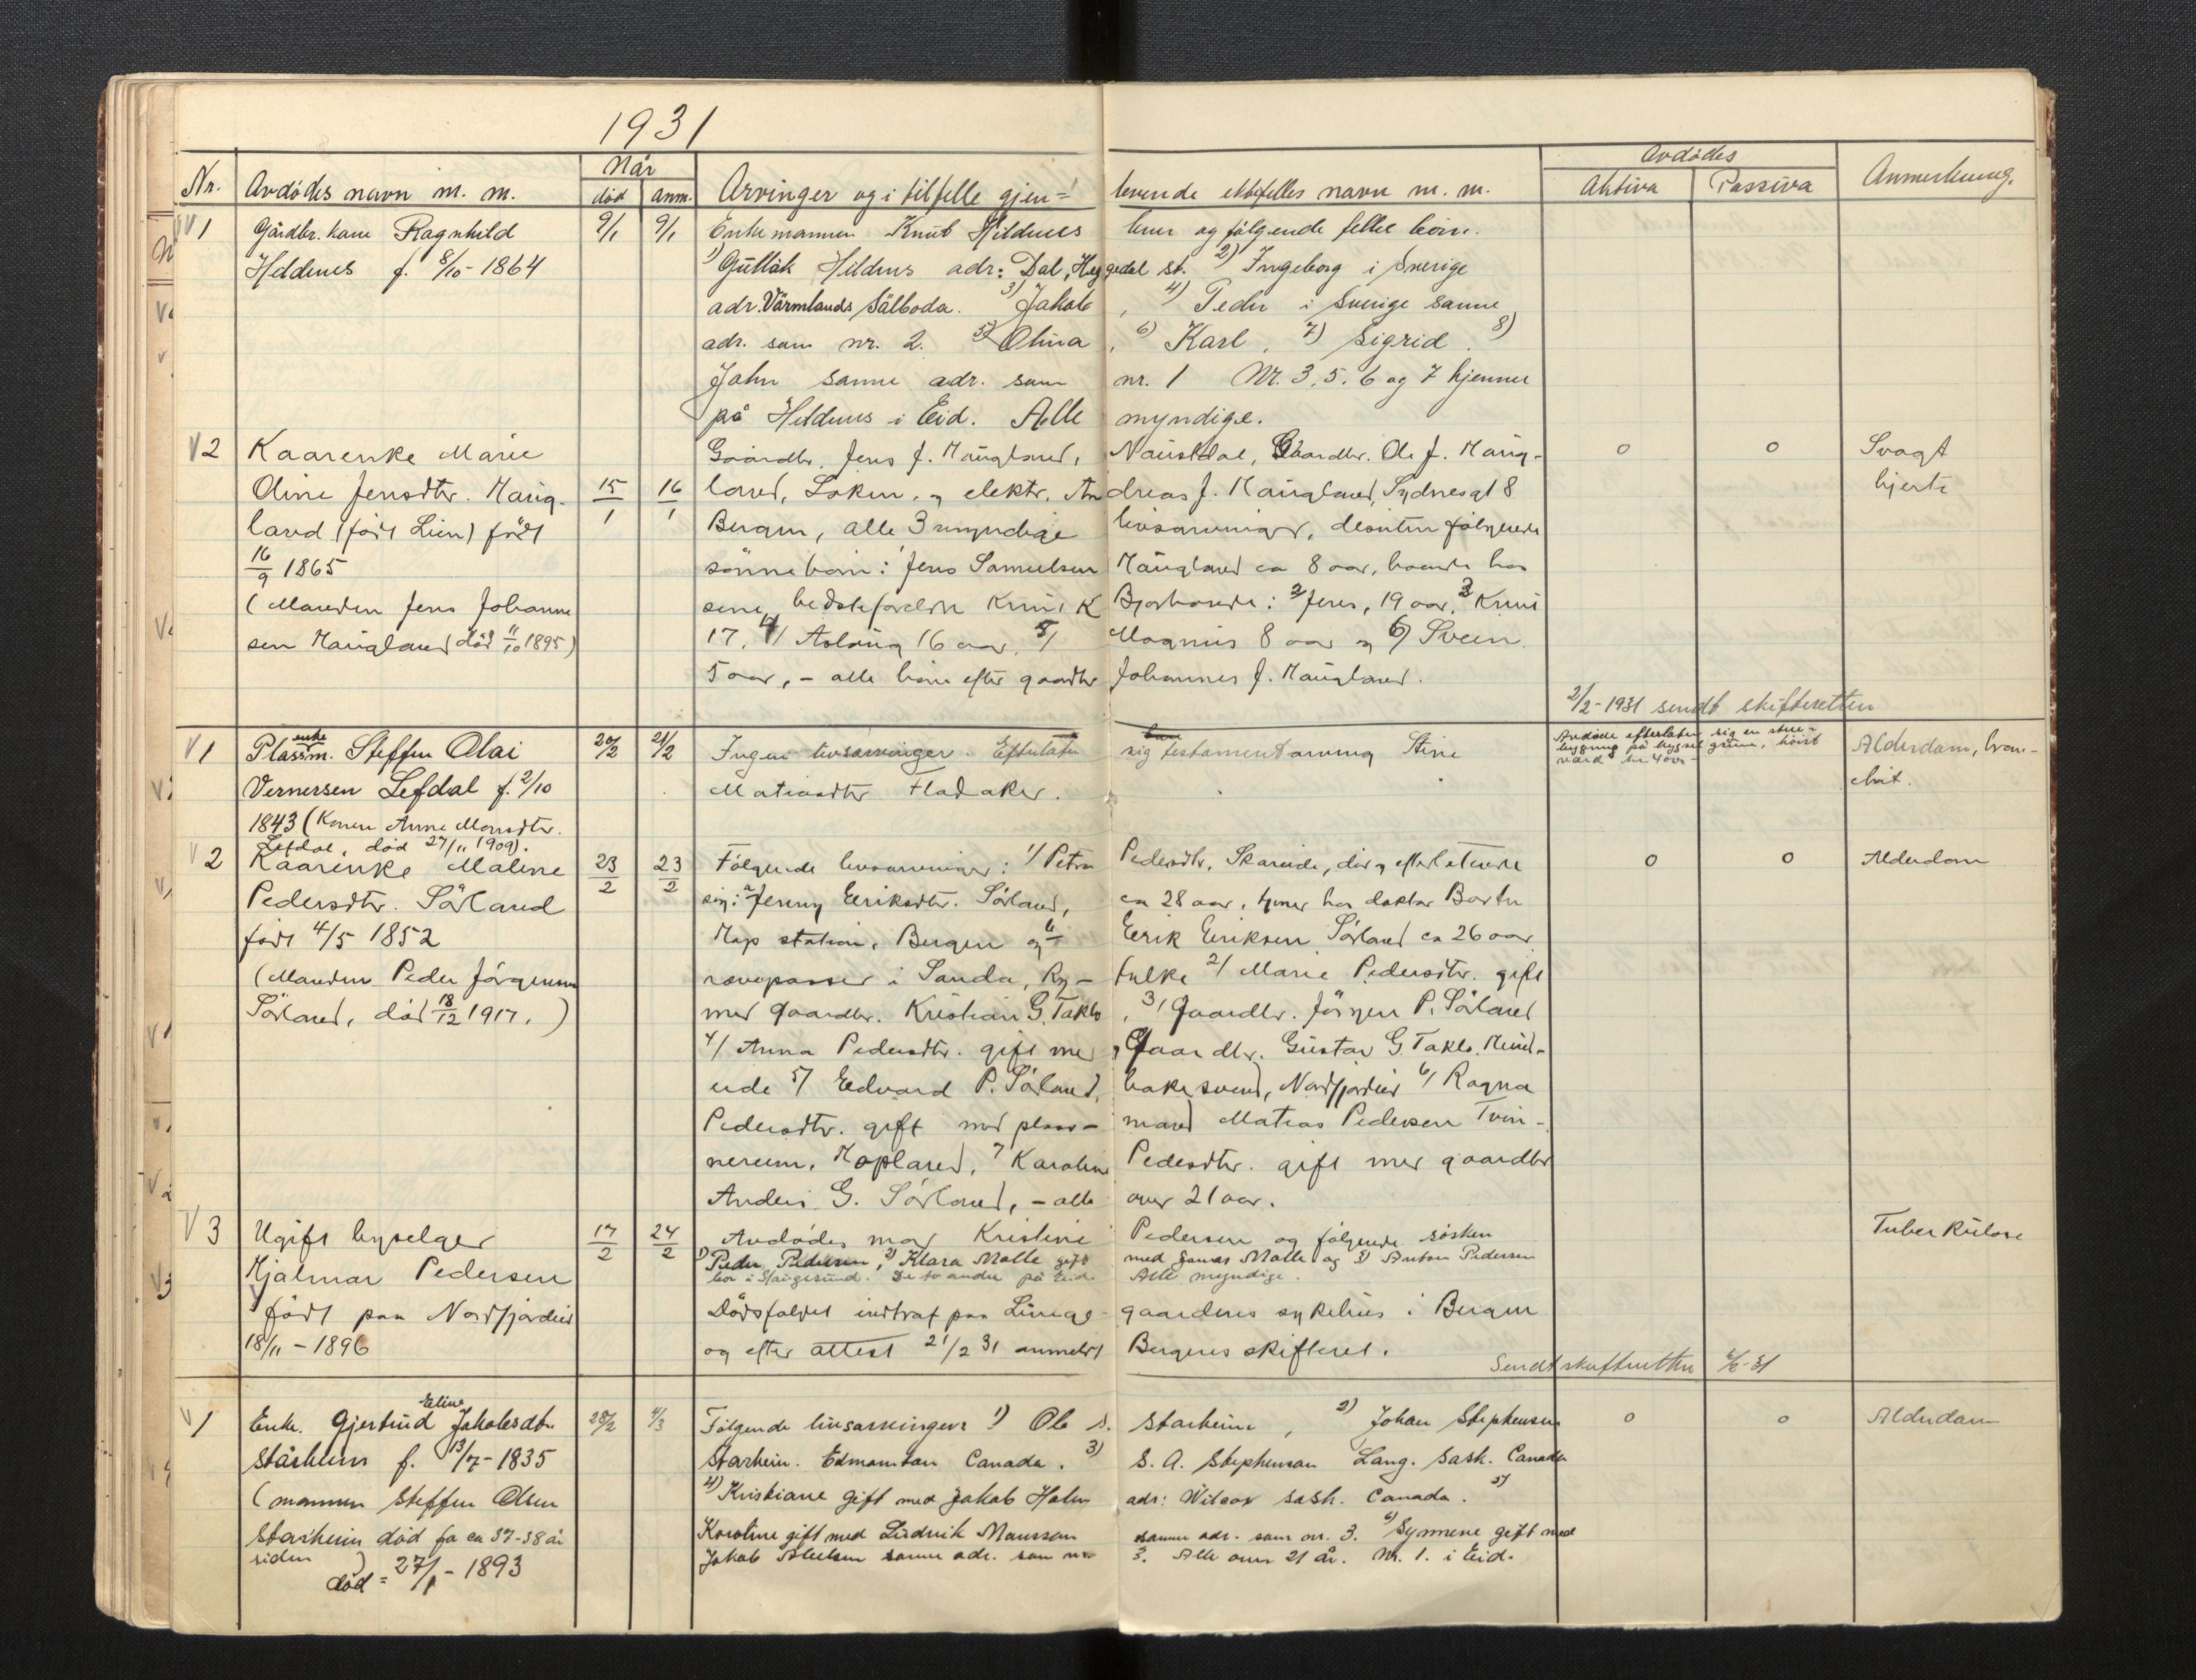 1931
Nr. Avdødes navn m. m. Når død anm. Arvinger og i tilfelle gjen= levende ektefelles navn m. m. Avdødes Aktiva Passiva Anmerkning.
V 1 Gårdbr. kone Ragnhild 9/1 9/1 Enkemannen Knut Hildenes og følgende felles børn.
Hildenes f. 8/10 - 1864 1) Gullak Hildnes adr: Dal, Heggedal st. 2) Ingeborg i Sverige
adr. Värmlands Sälboda. 3) Jakob, 4) Peder i Sverige samme
adr. som nr. 2. 5) Olina, 6) Karl, 7) Sigrid. 8)
John samme adr. som nr. 1 Nr. 3, 5, 6 og 7 hjemme
på Hildenes i Eid. Alle myndige.
V 2 Kaarenke Marie Gaardbr. Jens J. Maugland, Naustdal, Gaardbr. Ole J. Maug- 0 0 Svagt
Oline Jensdtr. Maug- 15/1 16/1 land, Loken, og elektr. Andreas J. Maugland, Sydnesgt 8 hjerte
land (født Lien) født Bergen, alle 3 myndige livsarvinger, desuten følgende
16/9 1865 sønnebørn: Jens Samuelsen Maugland ca 8 aar, hos
(Manden Jens Johanne sine bedsteforeldre Knut K : 2/ Jens, 19 aar, 3 Knut
sen Maugland død 11/10 1895) 17, 4/ Aslaug 16 aar, 5/ Magnus 8 aar og 6/ Svein
5 aar, - alle børn efter gaardbr Johannes J. Maugland.
2/2 - 1931 sendt skifteretten
V 1 Plassm. enke Steffen Olai 20/2 21/2 Ingen livsarvinger. Efterlater sig testamentarving Stine Avdøde efterlater sig en stue- bygning på bygsel grunn, høist verd kr 400 - Alderdom, bron-
Vernersen Lefdal f. 2/10 Matiasdtr Hadaker. chit.
1843 (Konen Anne Monsdtr.
Lefdal, død 27/11 1909).
V 2 Kaarenke Maline 23/2 23/2 Følgende livsarvinger: 1/ Petra Pedersdtr. Skareide, død og efterlatende 0 0 Alderdom
Pedersdtr. Sørland sig: a Jenny Eriksdtr. Sørland, ca 28 aar, tjener hos doktor
født 4/5 1852 Haps station, Bergen og b Erik Eriksen Sørland ca 26 aar
(Manden Peder Jørgensen revepasser i Sanda, Ry- fylke 2/ Marie Pedersdtr. gift
Sørland, død 18/12 1917.) med gaardbr. Kristian G. Taklo, 3/ Gaardbr. Jørgen P. Sørland
4/ Anna Pedersdtr. gift med Gaardbr. Gustav G. Taklo,
eide 5/ Edvard P. Sørland, bakersvend, Nordfjordeid 6/ Ragna
Pedersdtr. gift med plass- mand Matias Pedersen Tvin-
nereim, Hopland, 7 Karoline Pedersdtr. gift med gaardbr
Anders G. Sørland, - alle over 21 aar.
V 3 Ugift byselger 17/2 24/2 Avdødes mor Kristine Pedersen og følgende søsken Tuberkulose
Hjalmar Pedersen 1) Peder Pedersen, 2) Klara Malle gift med Jonas Malle og 3) Anton Pedersen
bor i Haugesund. De to andre på Eid. Alle myndige.
født paa Nordfjordeid Dødsfaldet indtraf paa Lunge- gaardens sykehus i Bergen
18/11 - 1896 og efter attest 21/2 31 anmeldt Bergens skifteret.
Sendt skifteretten 4/3 - 31
V 1 Enke Gjertrud Eline Jakobsdtr. 28/2 4/3 Følgende livsarvinger 1) Ole S. Starheim, 2) Johan Stephensen 0 0 Alderdom
Stårheim f. 13/7 - 1835 Starheim. Edmonton Canada. 3) S. A. Stephenson Lang. Sask. Canada
(mannen Steffen Olsen 4) Kristiane gift med Jakob Holm adr: Wilcox sask. Canada. 5)
Starheim død for ca 37-38 år Karoline gift med Ludvik Monsson samme adr. som nr. 3. 6) Synnøve gift med
siden) Jakob Abelsen samme adr. som nr. 3. Alle over 21 år. Nr. 1. i Eid.
død = 27/1 - 1893